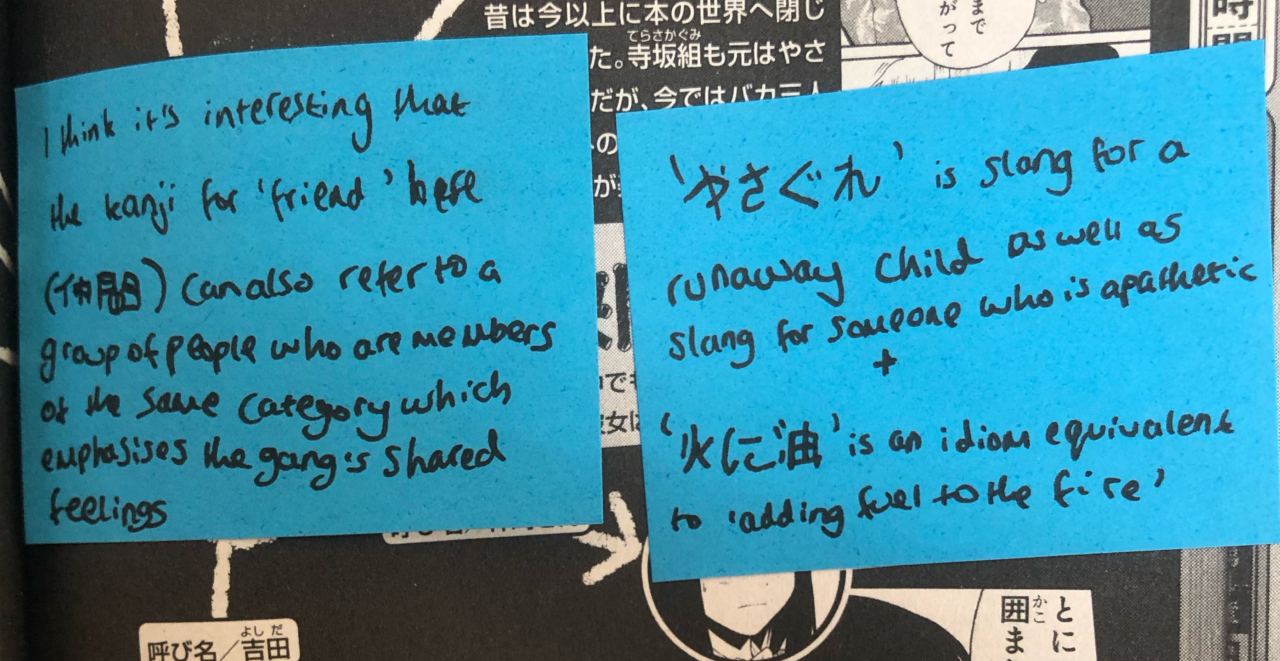 昔は今以上に本の世界へ閉じ
てらさかぐみ
た。寺坂組も元はやさ
だが、今ではバカ三人
の
が
まで
がって
時間
I think it's interesting that
the kanji for 'friend' here
(仲間) can also refer to a
group of people who are members
of the same category which
emphasises the gang's shared
feelings
'やさぐれ' is slang for a
runaway child as well as
slang for someone who is apathetic
+
'火に油' is an idiom equivalent
to 'adding fuel to the fire'
でも
女は
よしだ
呼び名/吉田
とに
かこ
囲ま